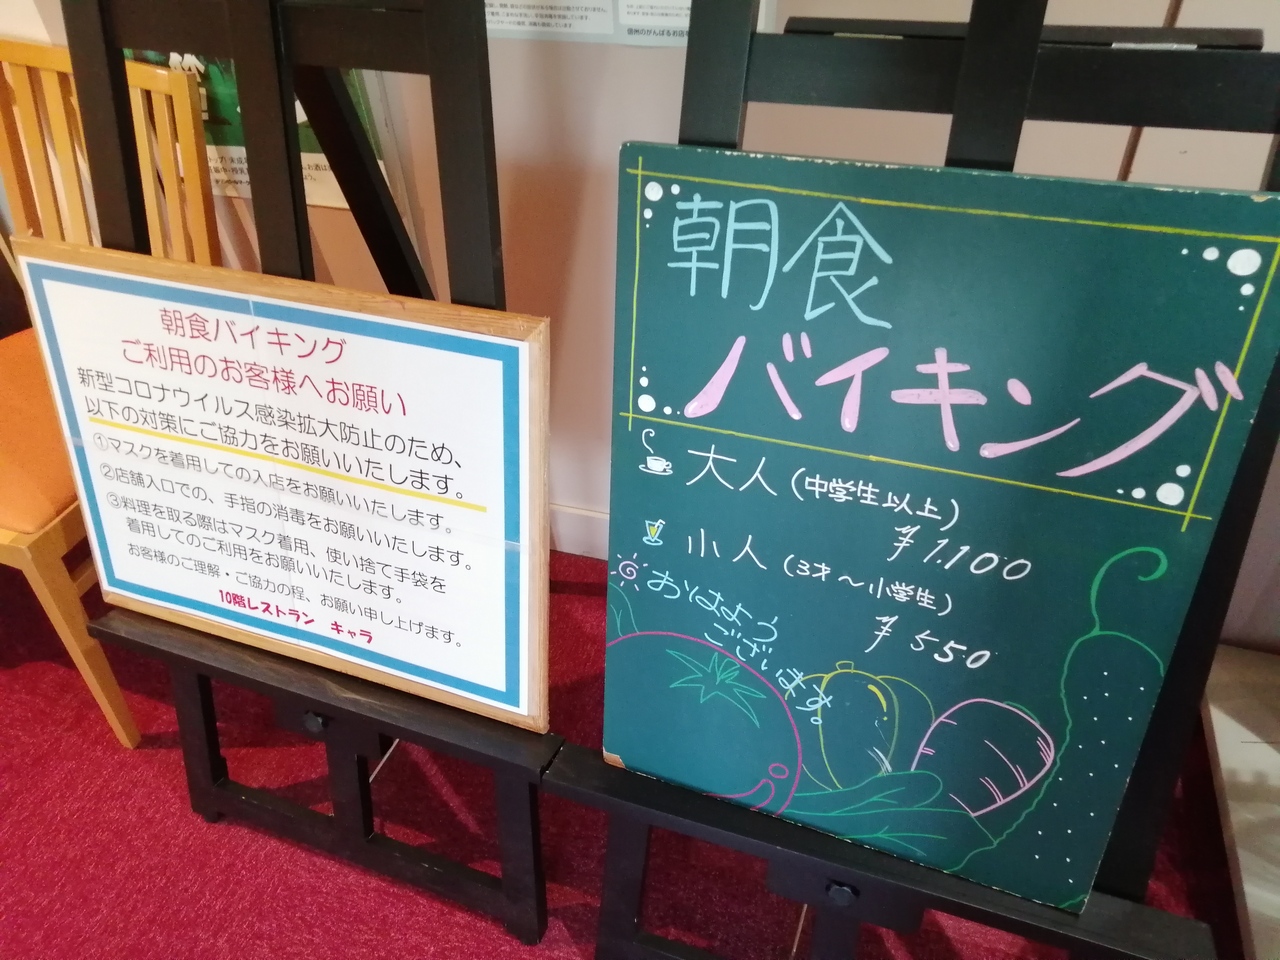 朝食バイキング
ご利用のお客様へお願い
新型コロナウイルス感染拡大防止のため、
以下の対策にご協力をお願いいたします。
①マスクを着用しての入店をお願いいたします。
②店舗入口での、手指の消毒をお願いいたします。
③料理を取る際はマスク着用、使い捨て手袋を
着用してのご利用をお願いいたします。
お客様のご理解・ご協力の程、お願い申し上げます。
10階レストラン キャラ
朝食
バイキング
大人(中学生以上)
¥1.100
小人(3才～小学生)
¥550
おはよう
ございます。
信州のがんばるお店